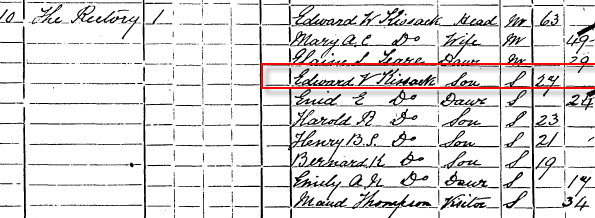 10 The Rectory 1 Edward W Kissack Head M 63
Mary A.C. Do Wife M 49
Elaine S Teare Daur M 29
Edward V Kissack Son S 27
Enid E Do Daur S 24
Harold R Do Son S 23
Henry B.S. Do Son S 21
Bernard K Do Son S 19
Emily A.N Do Daur S 17
Maud Thompson Visitor S 34